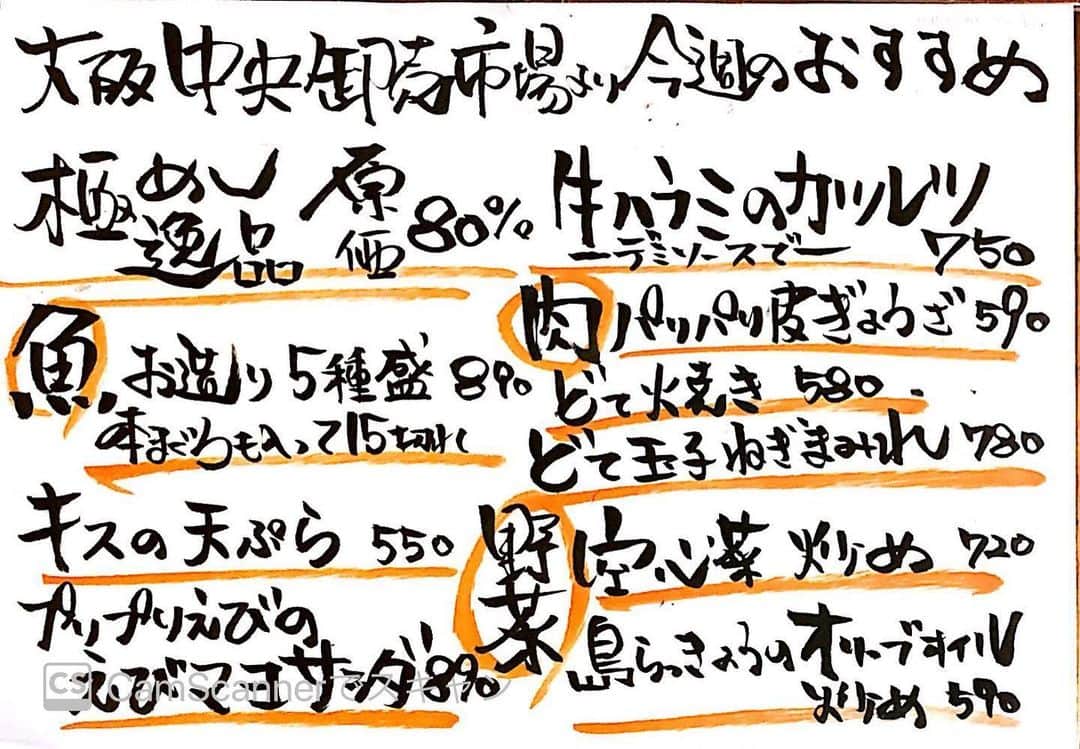 大阪中央卸売市場より今週のおすすめ
極めし逸品 原価80%
魚 お造り5種盛 890
本まぐろも入って15切れ
キスの天ぷら 550
プリプリえびの
えびマヨサラダ 890
牛ハラミのカツレツ
ーデミソースでー 750
肉 パリパリ皮ぎょうざ 590
どて焼き 580
どて玉子ねぎまみれ 780
野菜 空心菜炒め 720
島らっきょうのオリーブオイル
炒め 590
CS CamScannerでスキャン